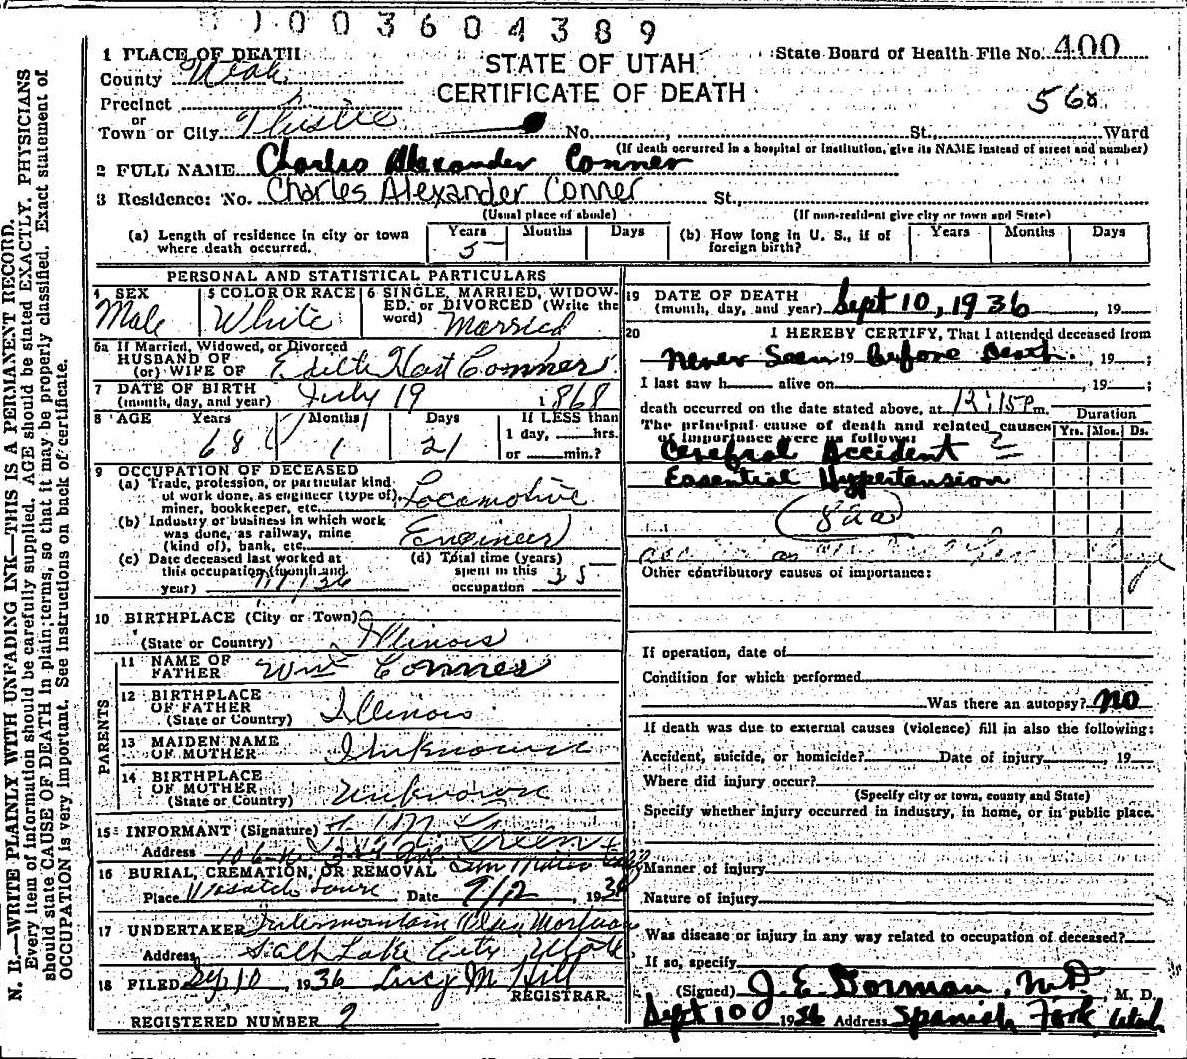 1003604389
1 PLACE OF DEATH
STATE OF UTAH
State Board of Health File No. 400
County Utah
CERTIFICATE OF DEATH
Precinct
568
or
Town or City Thistle No. , St., Ward
(If death occurred in a hospital or institution, give its NAME instead of street and number)
2 FULL NAME Charles Alexander Conner
3 Residence: No. Charles Alexander Conner St.,
(Usual place of abode) (If non-resident give city or town and State)
(a) Length of residence in city or town where death occurred. Years 5 Months Days
(b) How long in U. S., if of foreign birth? Years Months Days
PERSONAL AND STATISTICAL PARTICULARS
4 SEX Male
5 COLOR OR RACE White
6 SINGLE, MARRIED, WIDOWED, or DIVORCED (Write the word) Married
6a If Married, Widowed, or Divorced
HUSBAND OF
(or) WIFE OF Edith Hart Conner
7 DATE OF BIRTH
(month, day, and year) July 19 1868
8 AGE Years 68 Months 1 Days 21
If LESS than
1 day, hrs.
or min.?
9 OCCUPATION OF DECEASED
(a) Trade, profession, or particular kind
of work done, as engineer (type of),
miner, bookkeeper, etc. Locomotive
(b) Industry or business in which work
was done, as railway, mine
(kind of), bank, etc. Engineer
(c) Date deceased last worked at
this occupation (month and
year)
(d) Total time (years)
spent in this
occupation 35
10 BIRTHPLACE (City or Town)
(State or Country) Illinois
PARENTS
11 NAME OF
FATHER Wm Conner
12 BIRTHPLACE
OF FATHER
(State or Country) Illinois
13 MAIDEN NAME
OF MOTHER Unknown
14 BIRTHPLACE
OF MOTHER
(State or Country) Unknown
15 INFORMANT (Signature)
Address
16 BURIAL, CREMATION, OR REMOVAL
Place Wasatch Lawn Date 9/12, 1936
17 UNDERTAKER Intermountain Mortuary
Address Salt Lake City, Utah
18 FILED Sep 10, 1936 Lucy M Hill
REGISTRAR
REGISTERED NUMBER 2
19 DATE OF DEATH
(month, day, and year) Sept 10, 1936, 19
20 I HEREBY CERTIFY, That I attended deceased from
Never Seen 19 Before Death, 19 ;
I last saw h alive on , 19 ;
death occurred on the date stated above, at 12:15 P m.
Duration
The principal cause of death and related causes
of importance were as follows:
Yrs. Mos. Ds.
Cerebral Accident ?
Essential Hypertension
(82a)
Other contributory causes of importance:
If operation, date of
Condition for which performed
Was there an autopsy? no
If death was due to external causes (violence) fill in also the following:
Accident, suicide, or homicide? Date of injury , 19
Where did injury occur?
(Specify city or town, county and State)
Specify whether injury occurred in industry, in home, or in public place.
Manner of injury
Nature of injury
Was disease or injury in any way related to occupation of deceased?
If so, specify
(Signed) J. E. Dorman, M.D., M. D.
Sept 10 1936 Address Spanish Fork, Utah
N. B.—WRITE PLAINLY WITH UNFADING INK—THIS IS A PERMANENT RECORD.
Every item of information should be carefully supplied. AGE should be stated EXACTLY. PHYSICIANS
should state CAUSE OF DEATH in plain terms, so that it may be properly classified. Exact statement of
OCCUPATION is very important. See instructions on back of certificate.